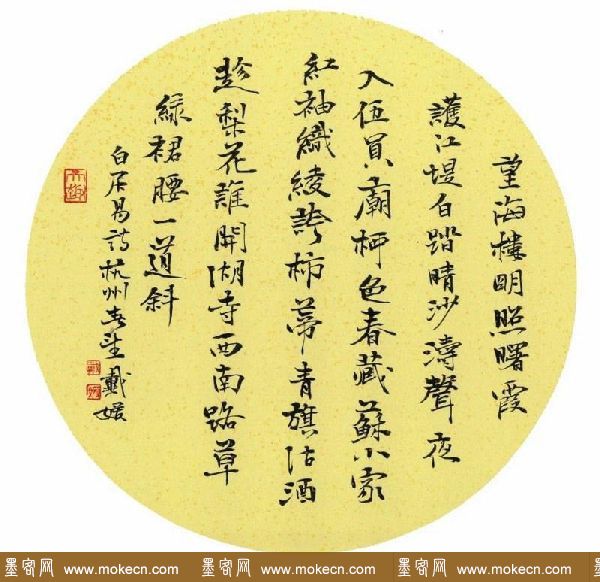 望海樓明照曙霞
護江堤白踏晴沙濤聲夜
入伍員廟柳色春藏蘇小家
紅袖織綾誇柿蒂青旗沽酒
趁梨花誰開湖寺西南路草
綠裙腰一道斜
白居易詩杭州春望戴
墨客网 www.mokecn.com 墨客网 www.mokecn.com 墨客网 www.mokecn.com 墨客网